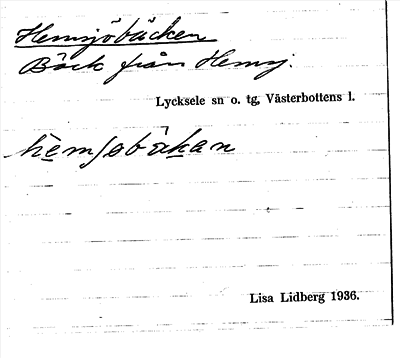 Hemsjöbäcken
Bäck från Hemsj.
Lycksele sn o. tg, Västerbottens l.
hemsobäkan
Lisa Lidberg 1936.